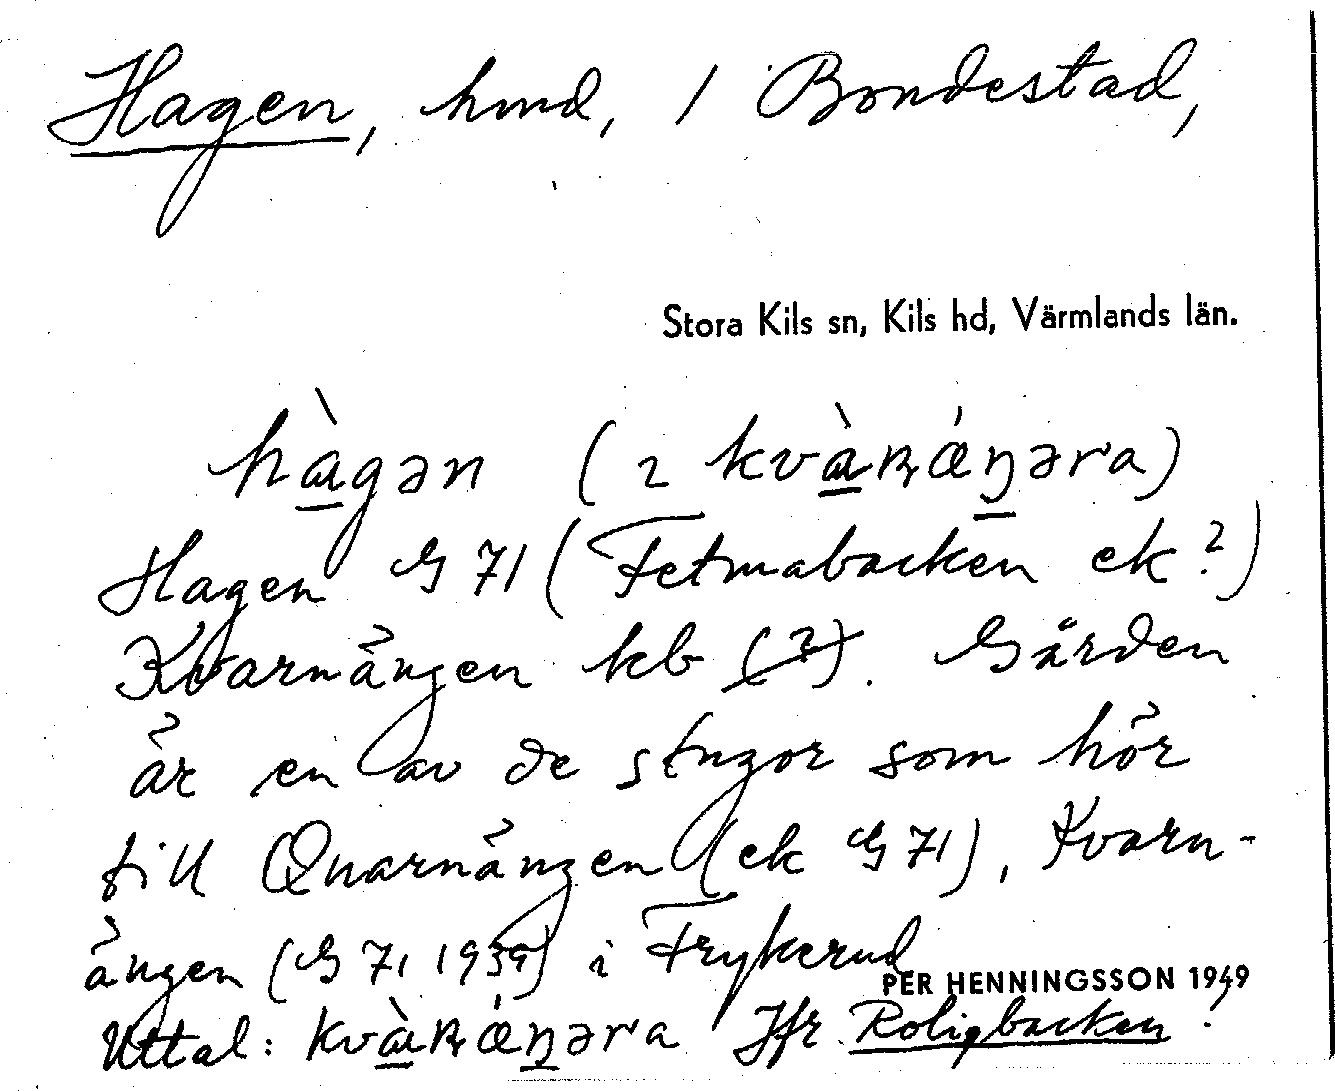 Hagen, hmd, / Bondestad,
Stora Kils sn, Kils hd, Värmlands län.
hàgən (ɪ kvàʀǽŋəra)
Hagen G 71 (Fetmabacken ek?)
Kvarnängen kb (?). Gården
är en av de stugor som hör
till Quarnängen (ek G 71), Kvarn-
ängen (G 71 1939) i Frykerud
PER HENNINGSSON 1949
Uttal: kvàʀǽŋəra Jfr Roligbacken!